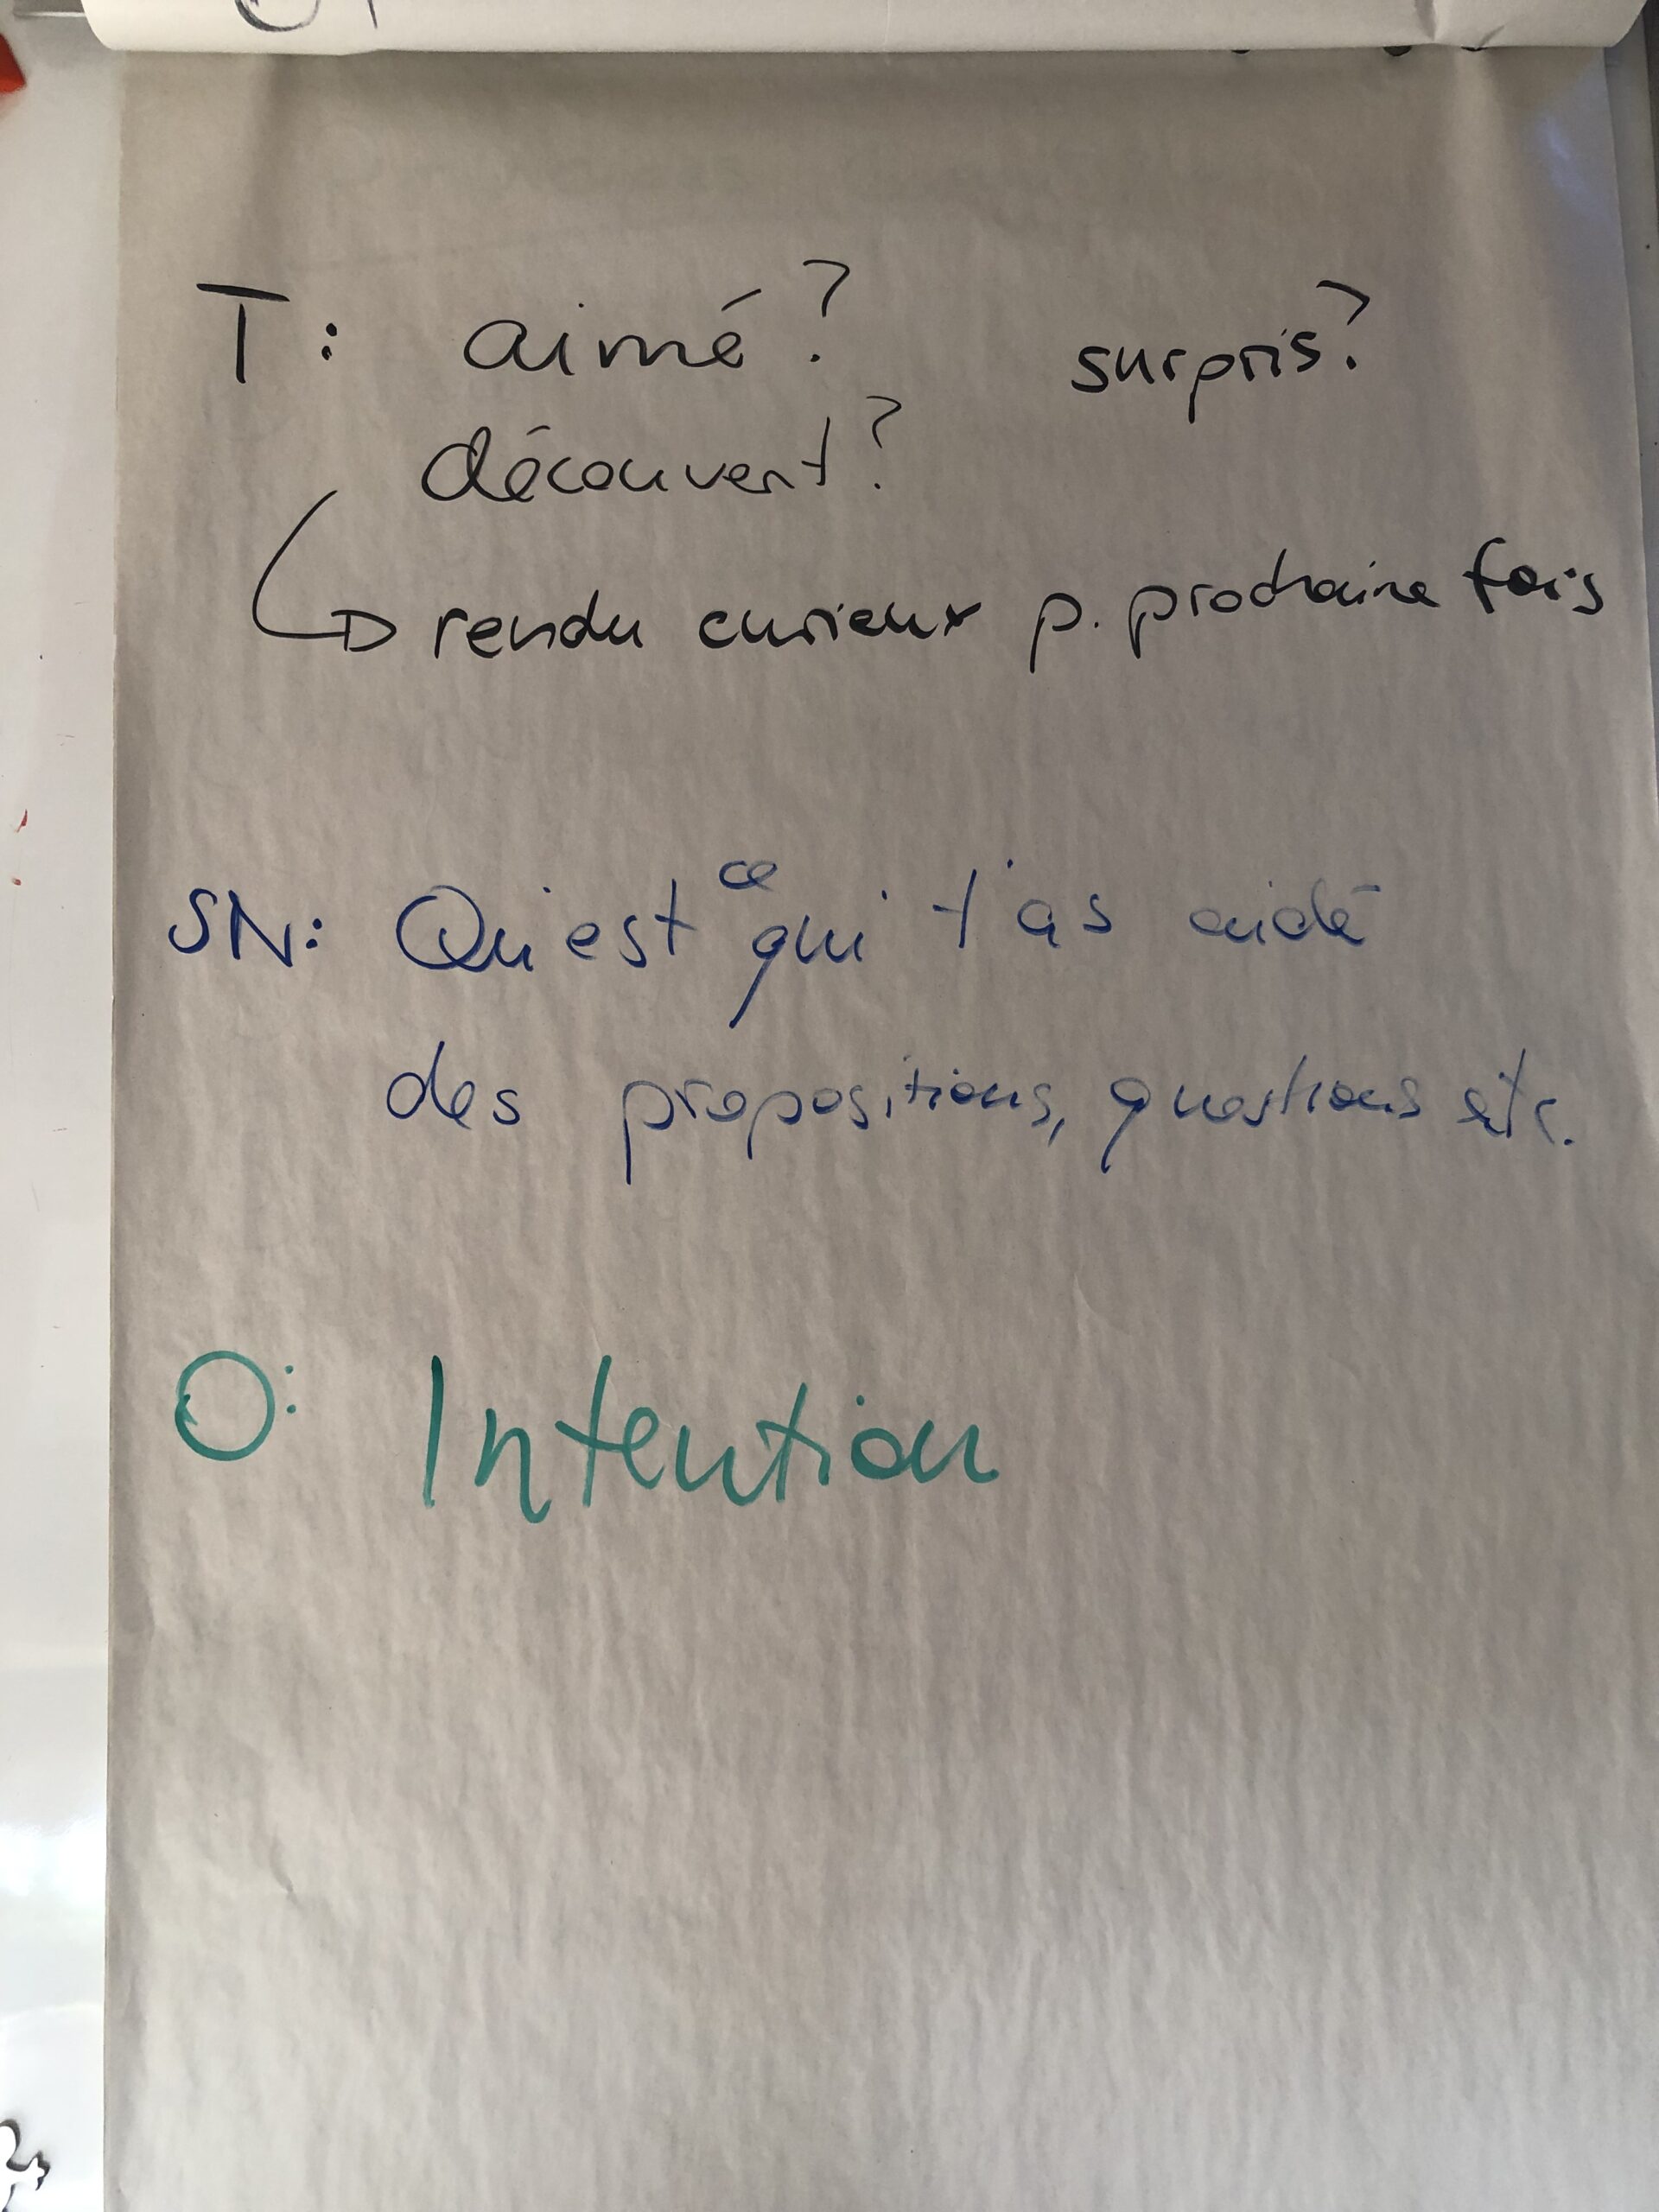 T: aimé? surpris?
découvert?
rendu curieux p. prochaine fois
SN: Qu'est ce qui t'as aidé
des propositions, questions etc.
O: Intention